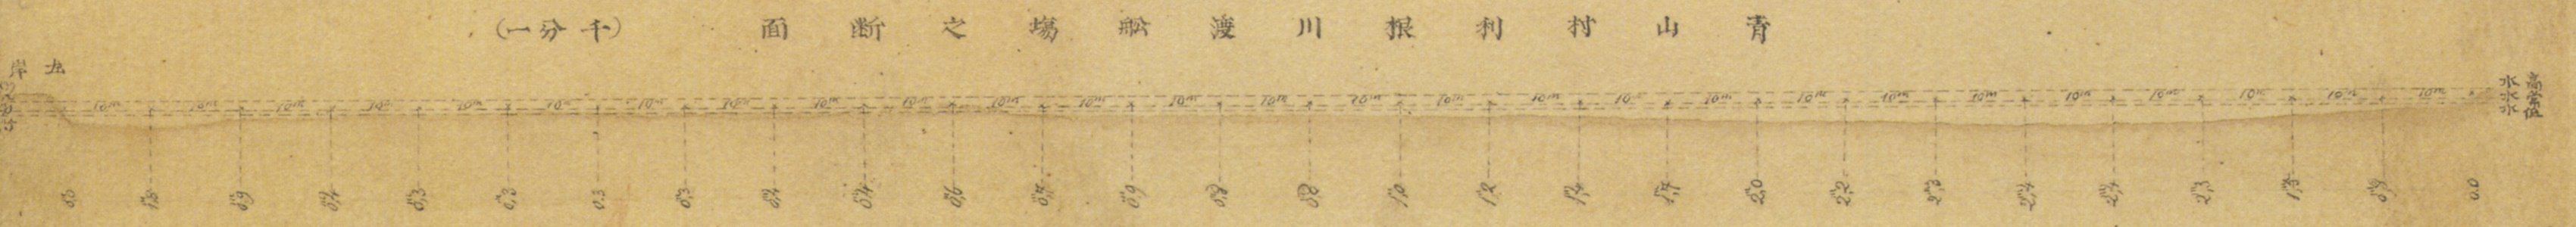 青山村利根川渡舩場之断面 (千分一)
左岸
高水
平水
低水
10m 10m 10m 10m 10m 10m 10m 10m 10m 10m 10m 10m 10m 10m 10m 10m 10m 10m 10m 10m 10m 10m 10m 10m 10m 10m 10m
1.8 0.9 0.4 0.3 0.3 0.3 0.3 0.4 0.4 0.6 0.7 0.9 0.8 0.8 1.0 1.2 1.4 1.7 2.0 2.2 2.3 2.4 2.4 2.3 1.3 0.0